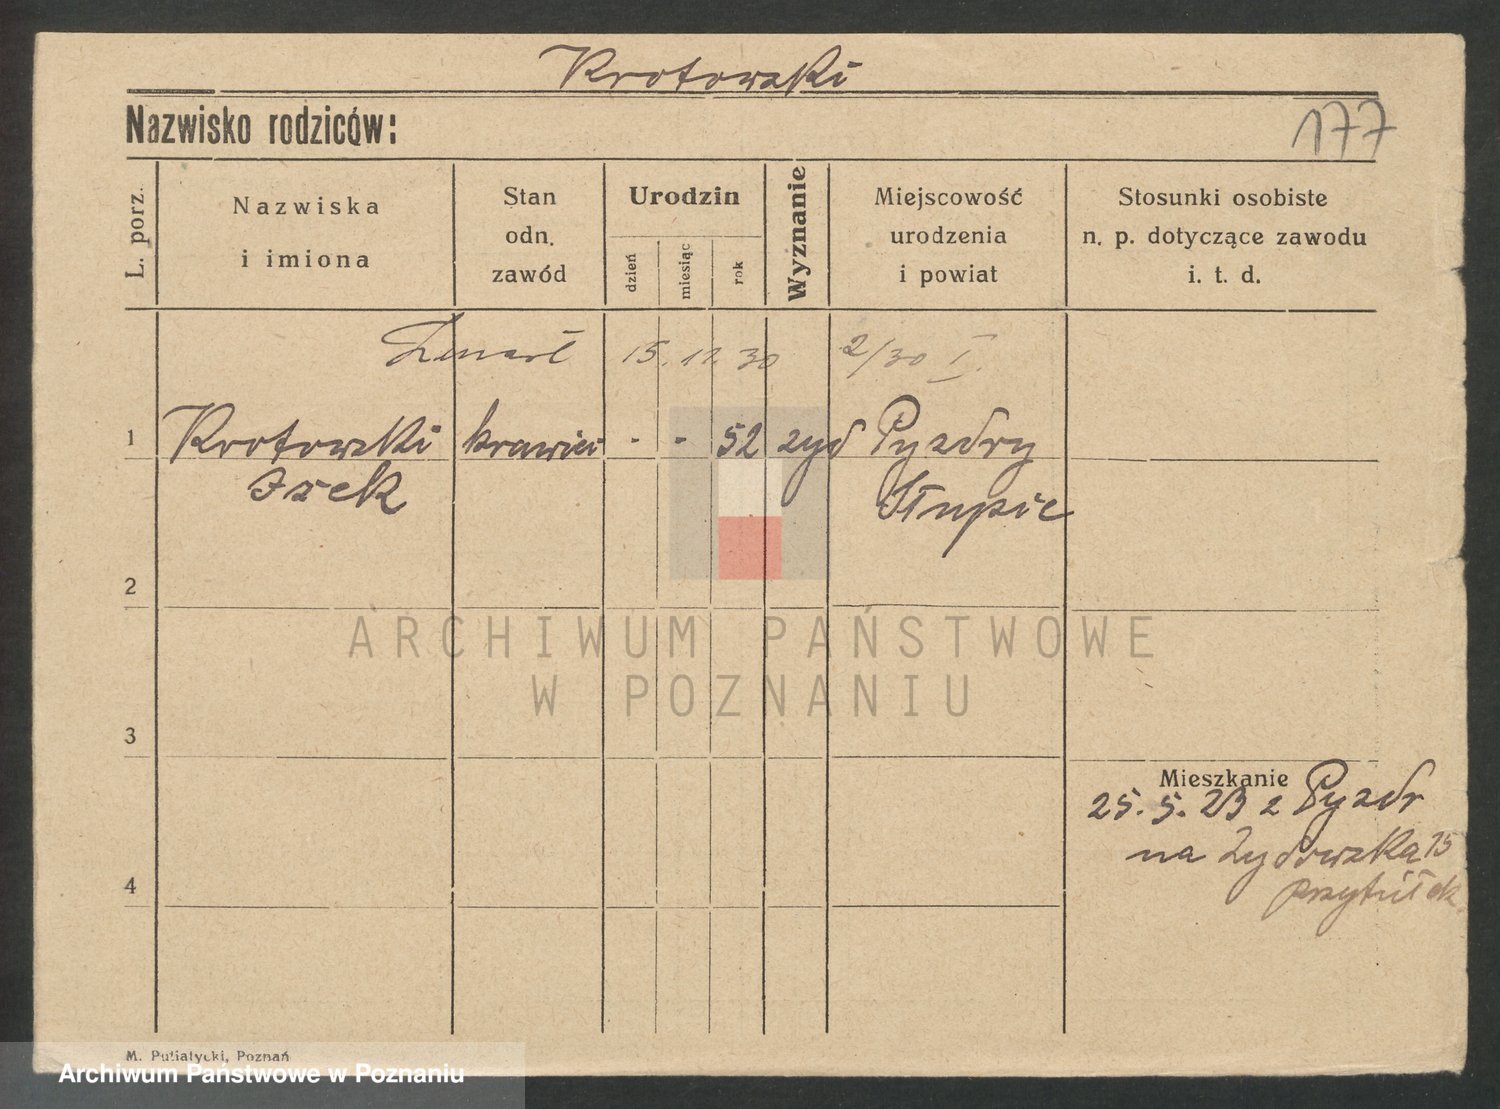 Krotowski
Nazwisko rodziców:
177
L. porz.
Nazwiska
i imiona
Stan
odn.
zawód
Urodzin
dzień
miesiąc
rok
Wyznanie
Miejscowość
urodzenia
i powiat
Stosunki osobiste
n. p. dotyczące zawodu
i. t. d.
Zmarł 15. 11. 30 2/30 I.
1 Krotowski krawiec - - 52 zyd Pyzdry
Izek Słupie
2
ARCHIWUM PAŃSTWOWE
W POZNANIU
3
Mieszkanie
25. 5. 23 z Pyzdr
na Żydowska 15
przytułek
4
M. Putiatycki, Poznań
Archiwum Państwowe w Poznaniu